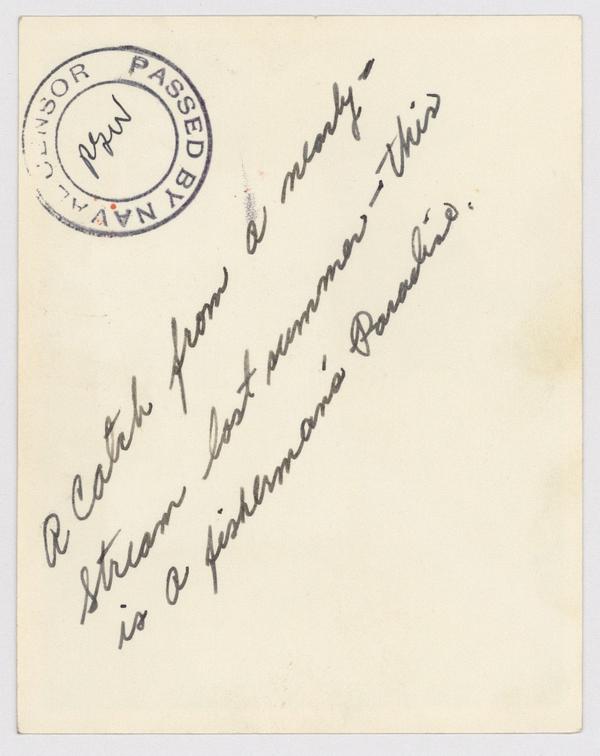 PASSED BY NAVAL CENSOR
A Catch from a nearly-
Stream last summer - this
is a fisherman's Paradise.